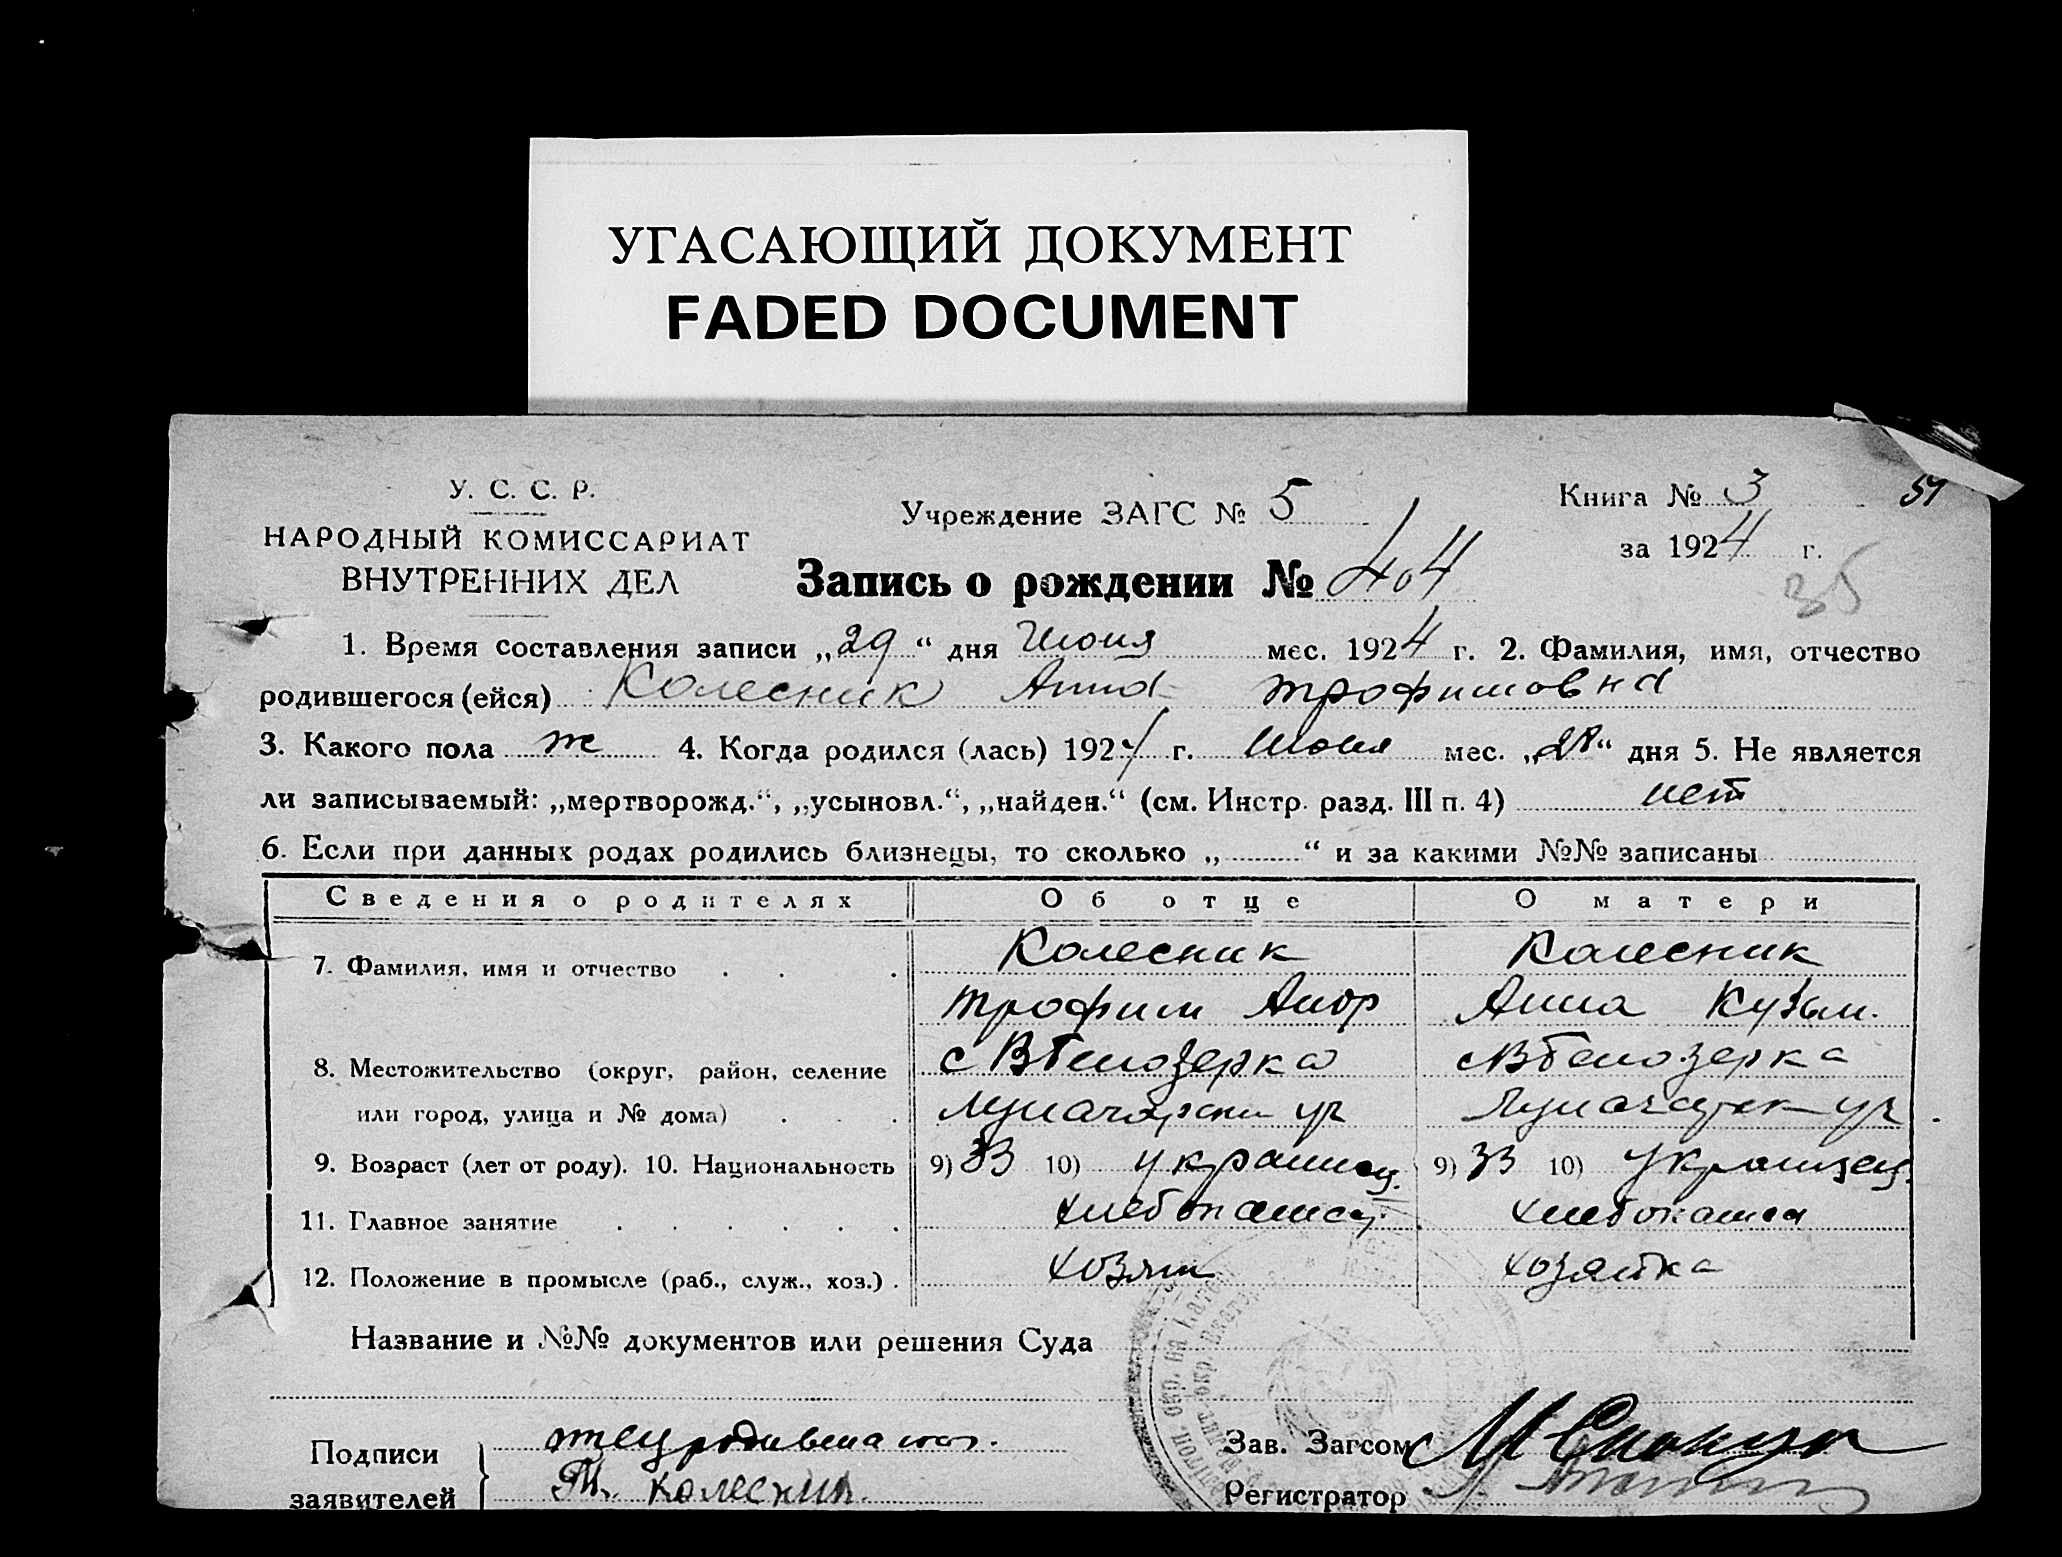 УГАСАЮЩИЙ ДОКУМЕНТ
FADED DOCUMENT
У. С. С. Р.
НАРОДНЫЙ КОМИССАРИАТ
ВНУТРЕННИХ ДЕЛ
Учреждение ЗАГС № 5
Книга № 3
51
за 1924 г.
35
Запись о рождении № 404
1. Время составления записи „29“ дня Июня мес. 1924 г. 2. Фамилия, имя, отчество
родившегося (ейся) Колесник Анна Трофимовна
3. Какого пола ж 4. Когда родился (лась) 1924 г. Июня мес. „28“ дня 5. Не является
ли записываемый: „мертворожд.“, „усыновл.“, „найден.“ (см. Инстр. разд. III п. 4) нет
6. Если при данных родах родились близнецы, то сколько „ “ и за какими №№ записаны
Сведения о родителях Об отце О матери
7. Фамилия, имя и отчество Колесник Колесник
Трофим Анна Кузьм.
8. Местожительство (округ, район, селение с Вбелозерка с Вбелозерка
или город, улица и № дома)
9. Возраст (лет от роду). 10. Национальность 9) 33 10) украинец. 9) 33 10) Украинец.
11. Главное занятие хлебопашец. хлебопашец
12. Положение в промысле (раб., служ., хоз.) хозяин хозяйка
Название и №№ документов или решения Суда
Подписи
заявителей
отец
Т. Колесник.
Зав. Загсом
Регистратор